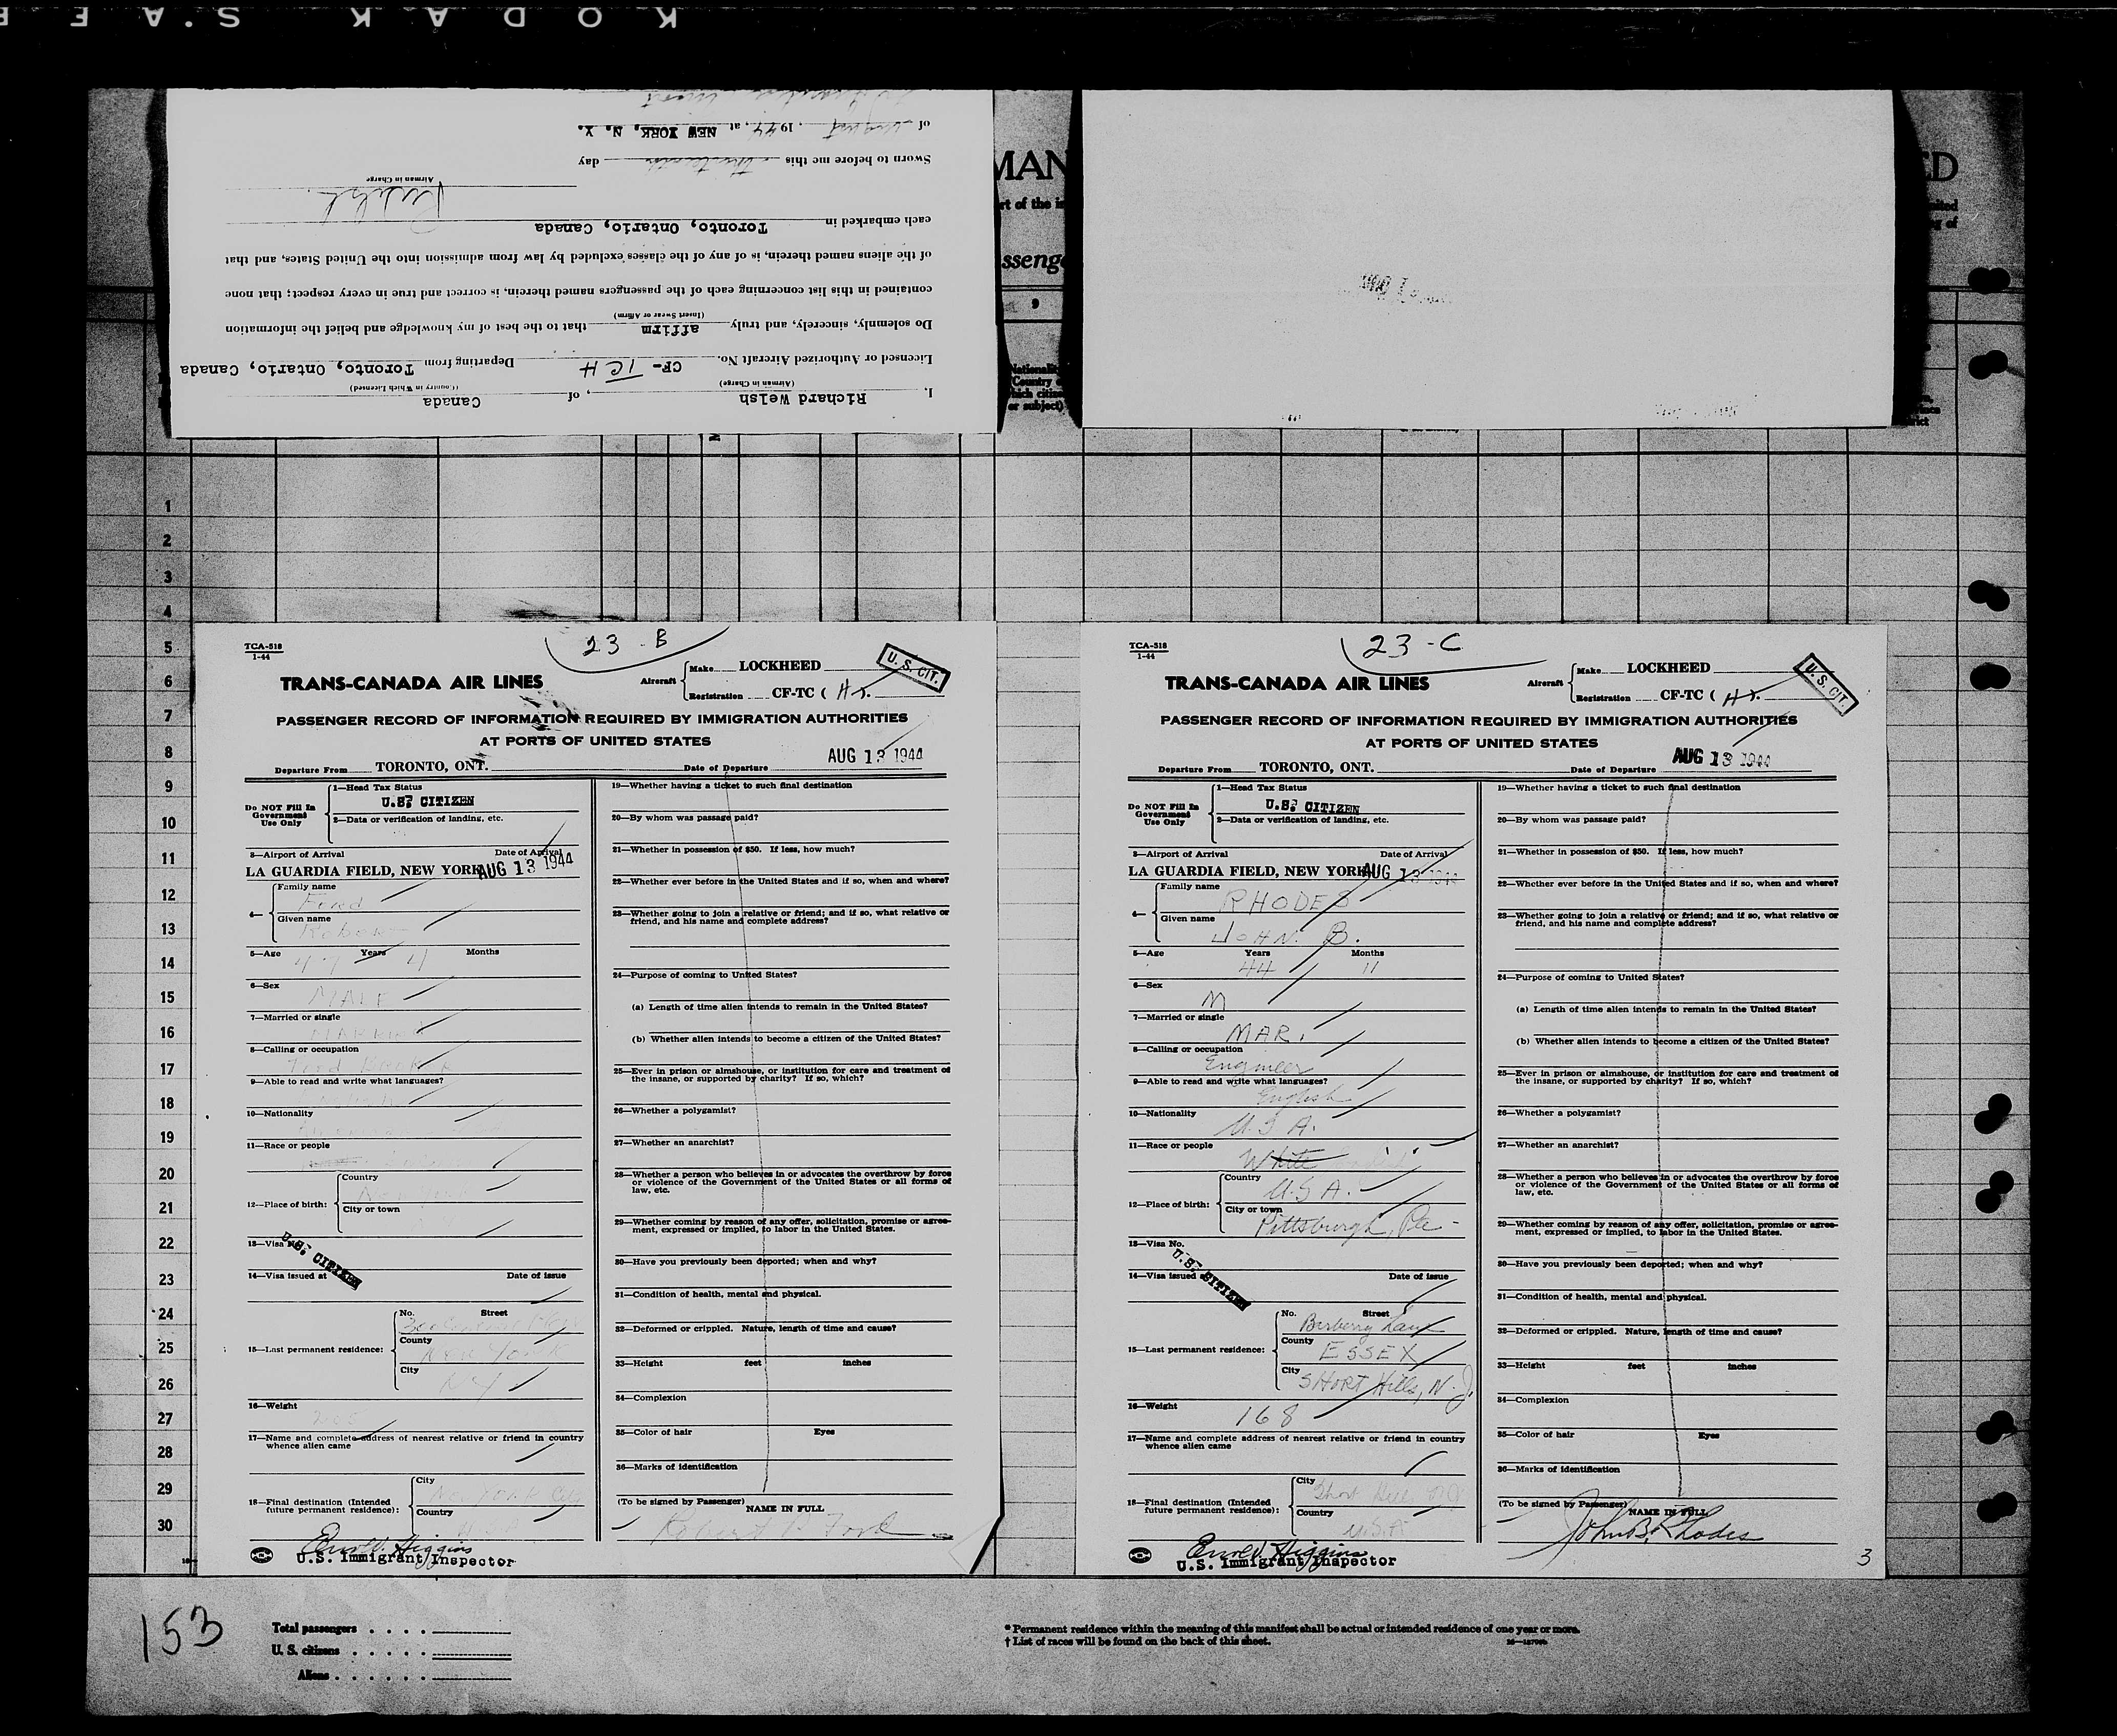 KODAK SAFE
of August, 1944, at NEW YORK, N. Y.
Sworn to before me this thirteenth day
Airman in Charge
each embarked in Toronto, Ontario, Canada
of the aliens named therein, is of any of the classes excluded by law from admission into the United States, and that
contained in this list concerning each of the passengers named therein, is correct and true in every respect; that none
(Insert Swear or Affirm)
Do solemnly, sincerely, and truly affirm that to the best of my knowledge and belief the information
Licensed or Authorized Aircraft No. CF-TCH Departing from Toronto, Ontario, Canada
(Airman in Charge) (Country in Which Licensed)
I, Richard Welsh, of Canada
MAN
rt of the in
ssenge
9
Nationality
(Country of
which citizen
or subject)
ED
1
2
3
4
5
6
7
8
9
10
11
12
13
14
15
16
17
18
19
20
21
22
23
24
25
26
27
28
29
30
TCA-518
1-44
23-B
TRANS-CANADA AIR LINES
Aircraft
Make LOCKHEED
Registration CF-TC (H).
U. S. CIT.
PASSENGER RECORD OF INFORMATION REQUIRED BY IMMIGRATION AUTHORITIES
AT PORTS OF UNITED STATES
AUG 13 1944
Departure From TORONTO, ONT. Date of Departure
Do NOT Fill In
Government
Use Only
1—Head Tax Status
U.S. CITIZEN
2—Data or verification of landing, etc.
3—Airport of Arrival Date of Arrival
LA GUARDIA FIELD, NEW YORK AUG 13 1944
4—
Family name
Ford
Given name
Robert
5—Age 47 Years 4 Months
6—Sex
MALE
7—Married or single
MARRIED
8—Calling or occupation
9—Able to read and write what languages?
10—Nationality
11—Race or people
12—Place of birth:
Country
City or town
13—Visa No.
U.S. CITIZEN
14—Visa issued at Date of issue
15—Last permanent residence:
No. Street
County
NEW YORK
City
N Y
16—Weight
17—Name and complete address of nearest relative or friend in country
whence alien came
18—Final destination (Intended
future permanent residence):
City
Country
U.S. Immigrant Inspector
19—Whether having a ticket to such final destination
20—By whom was passage paid?
21—Whether in possession of $50. If less, how much?
22—Whether ever before in the United States and if so, when and where?
23—Whether going to join a relative or friend; and if so, what relative or
friend, and his name and complete address?
24—Purpose of coming to United States?
(a) Length of time alien intends to remain in the United States?
(b) Whether alien intends to become a citizen of the United States?
25—Ever in prison or almshouse, or institution for care and treatment of
the insane, or supported by charity? If so, which?
26—Whether a polygamist?
27—Whether an anarchist?
28—Whether a person who believes in or advocates the overthrow by force
or violence of the Government of the United States or all forms of
law, etc.
29—Whether coming by reason of any offer, solicitation, promise or agree-
ment, expressed or implied, to labor in the United States.
30—Have you previously been deported; when and why?
31—Condition of health, mental and physical.
32—Deformed or crippled. Nature, length of time and cause?
33—Height feet inches
34—Complexion
35—Color of hair Eyes
36—Marks of identification
(To be signed by Passenger)
NAME IN FULL
Robert P. Ford
TCA-518
1-44
23-C
TRANS-CANADA AIR LINES
Aircraft
Make LOCKHEED
Registration CF-TC (H).
U. S. CIT.
PASSENGER RECORD OF INFORMATION REQUIRED BY IMMIGRATION AUTHORITIES
AT PORTS OF UNITED STATES
AUG 13 1944
Departure From TORONTO, ONT. Date of Departure
Do NOT Fill In
Government
Use Only
1—Head Tax Status
U.S. CITIZEN
2—Data or verification of landing, etc.
3—Airport of Arrival Date of Arrival
LA GUARDIA FIELD, NEW YORK AUG 13 1944
4—
Family name
RHODES
Given name
JOHN B.
5—Age Years Months
44 11
6—Sex
M
7—Married or single
MAR.
8—Calling or occupation
Engineer
9—Able to read and write what languages?
English
10—Nationality
U.S.A.
11—Race or people
White
12—Place of birth:
Country
U.S.A.
City or town
Pittsburgh, Pa-
13—Visa No.
U.S. CITIZEN
14—Visa issued Date of issue
15—Last permanent residence:
No. Street
Barberry Lane
County
ESSEX
City
SHORT Hills, N.J.
16—Weight
168
17—Name and complete address of nearest relative or friend in country
whence alien came
18—Final destination (Intended
future permanent residence):
City
Short Hills NJ
Country
U.S.A
U.S. Immigrant Inspector
19—Whether having a ticket to such final destination
20—By whom was passage paid?
21—Whether in possession of $50. If less, how much?
22—Whether ever before in the United States and if so, when and where?
23—Whether going to join a relative or friend; and if so, what relative or
friend, and his name and complete address?
24—Purpose of coming to United States?
(a) Length of time alien intends to remain in the United States?
(b) Whether alien intends to become a citizen of the United States?
25—Ever in prison or almshouse, or institution for care and treatment of
the insane, or supported by charity? If so, which?
26—Whether a polygamist?
27—Whether an anarchist?
28—Whether a person who believes in or advocates the overthrow by force
or violence of the Government of the United States or all forms of
law, etc.
29—Whether coming by reason of any offer, solicitation, promise or agree-
ment, expressed or implied, to labor in the United States.
30—Have you previously been deported; when and why?
31—Condition of health, mental and physical.
32—Deformed or crippled. Nature, length of time and cause?
33—Height feet inches
34—Complexion
35—Color of hair Eyes
36—Marks of identification
(To be signed by Passenger)
NAME IN FULL
John B. Rhodes
3
153
Total passengers
U. S. citizens
Aliens
* Permanent residence within the meaning of this manifest shall be actual or intended residence of one year or more.
† List of races will be found on the back of this sheet.